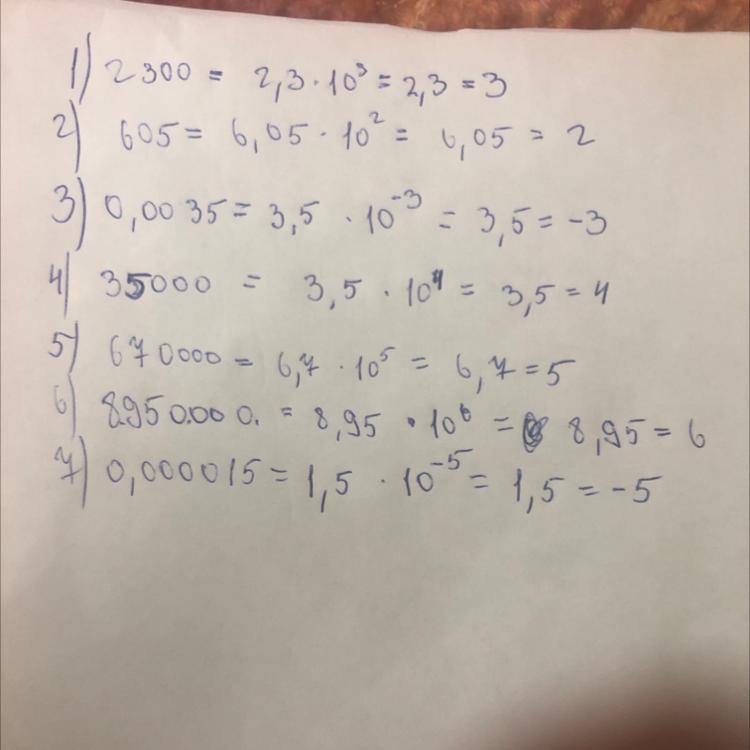 1) 2300 = 2,3 · 10³ = 2,3 = 3
2) 605 = 6,05 · 10² = 6,05 = 2
3) 0,0035 = 3,5 · 10⁻³ = 3,5 = -3
4) 35000 = 3,5 · 10⁴ = 3,5 = 4
5) 670000 = 6,7 · 10⁵ = 6,7 = 5
6) 8.950.000. = 8,95 · 10⁶ = 8,95 = 6
7) 0,000015 = 1,5 · 10⁻⁵ = 1,5 = -5